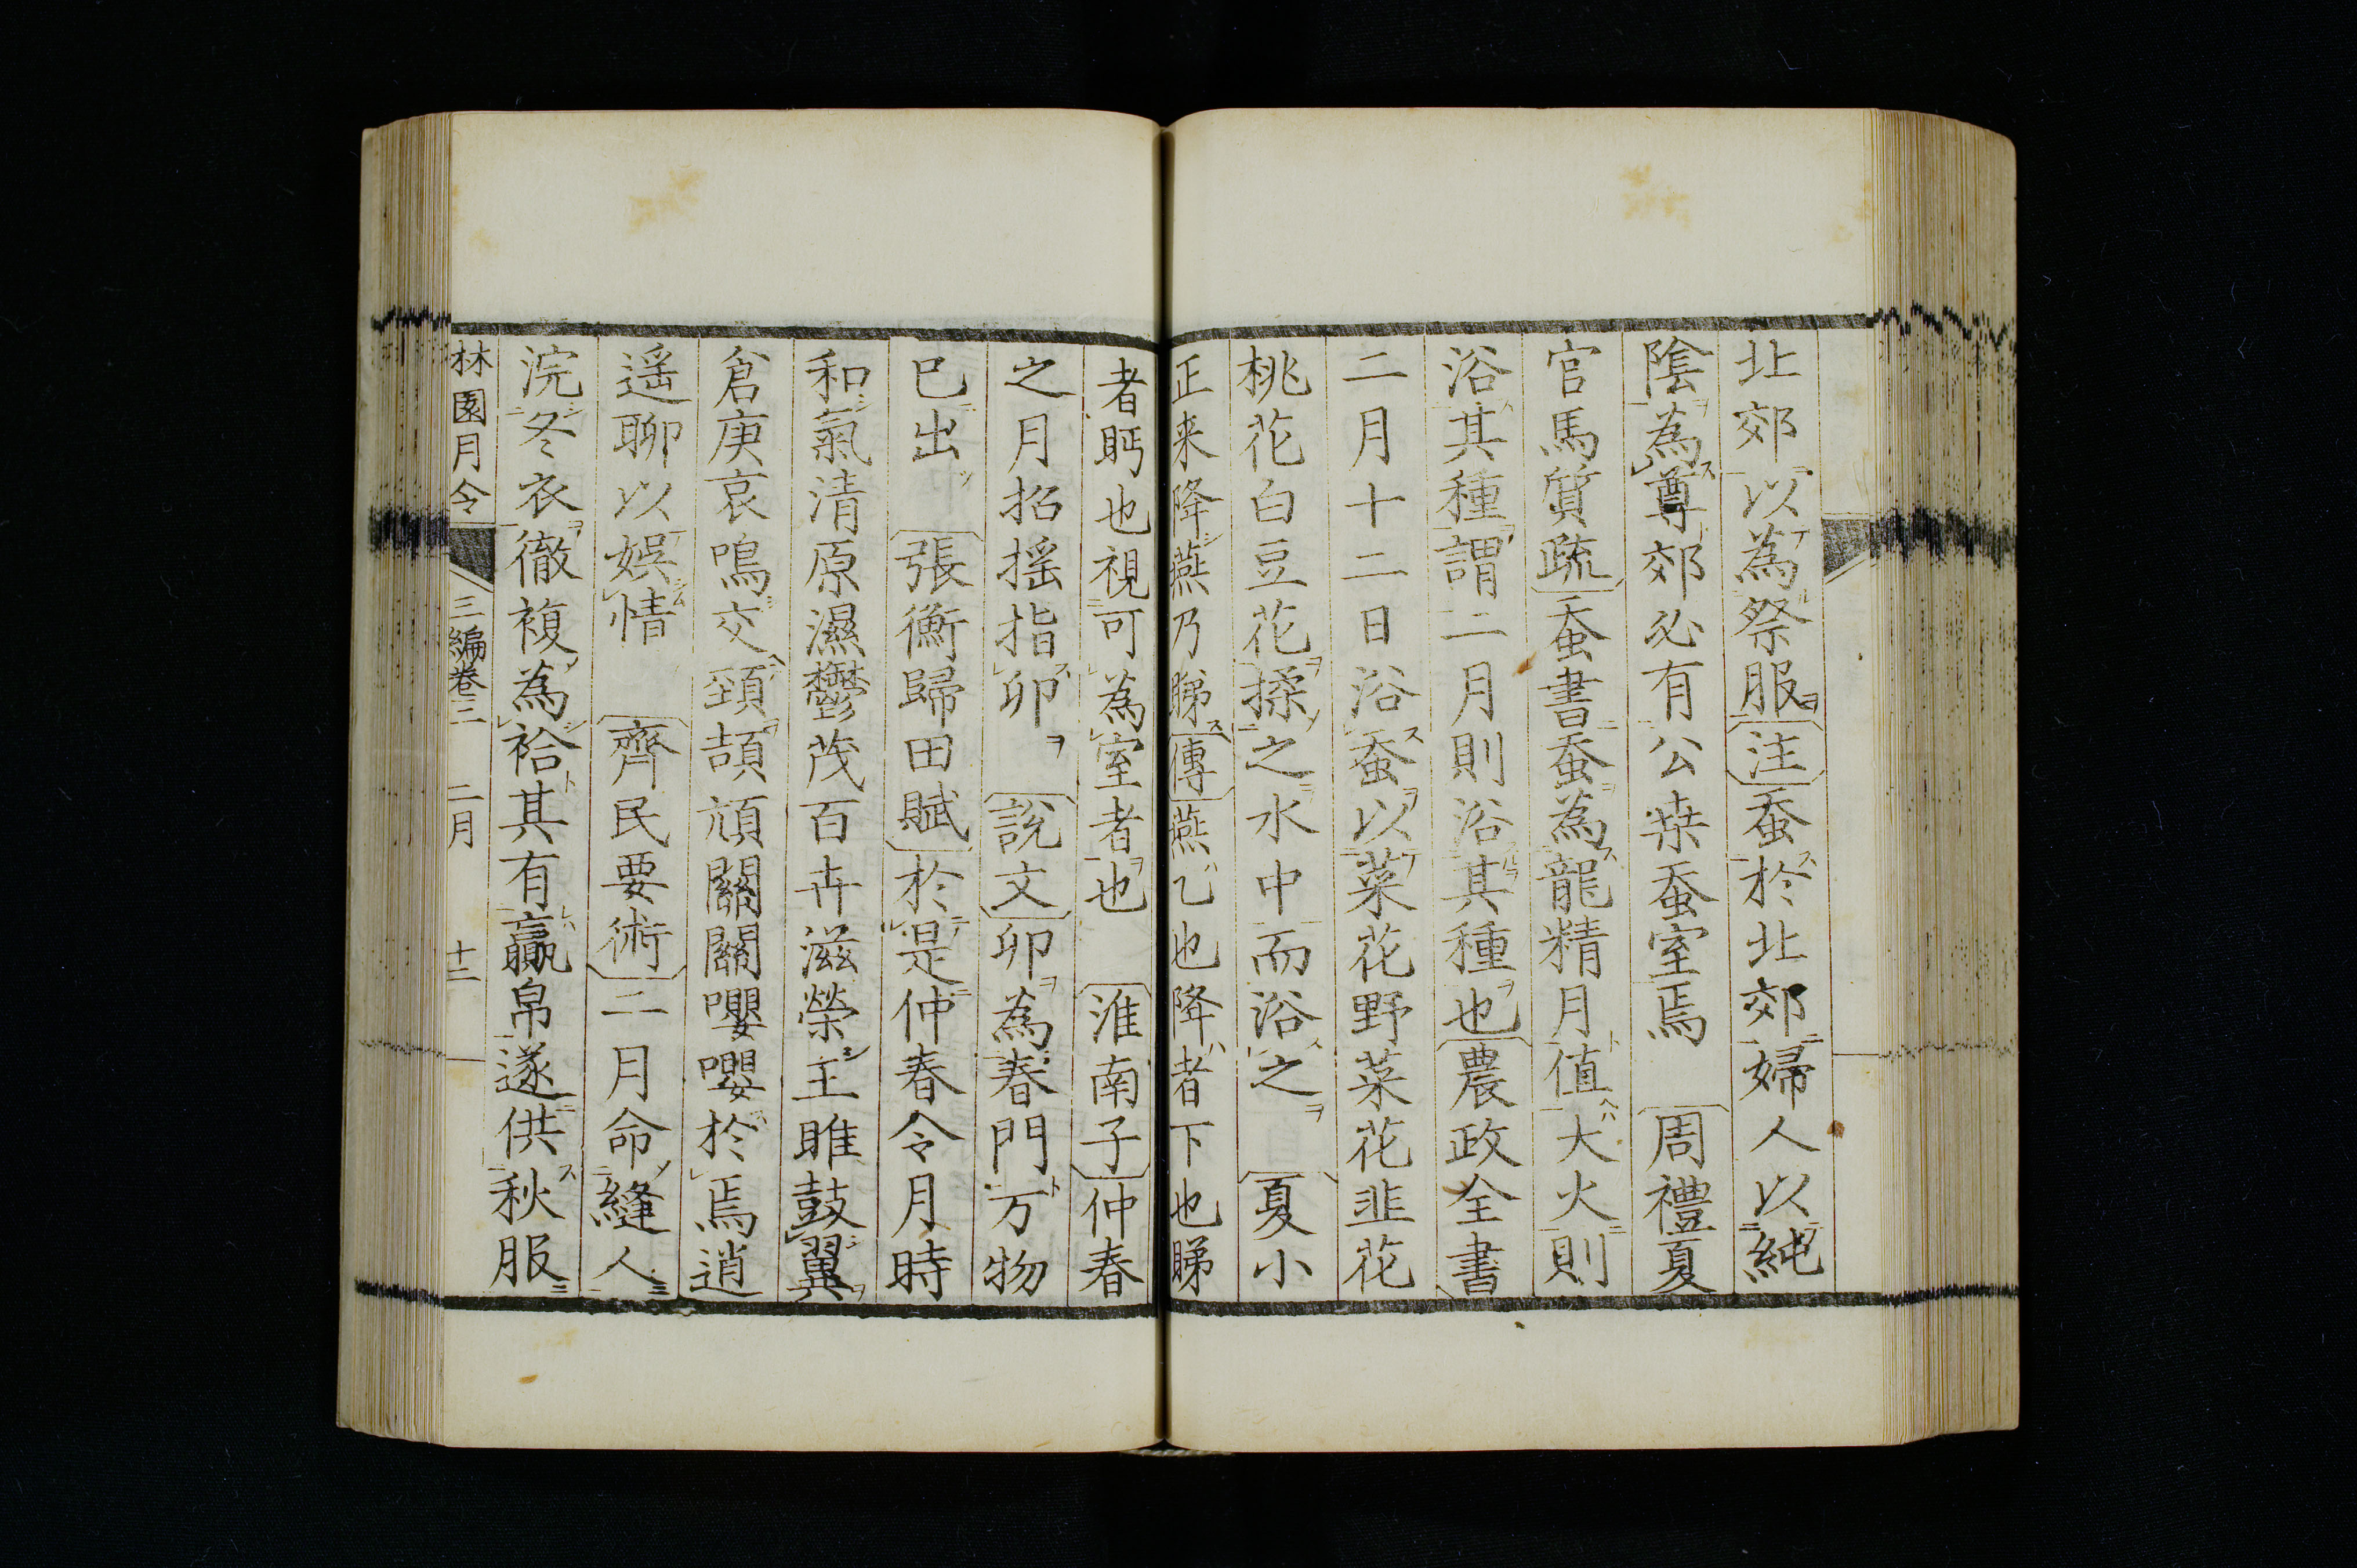 北郊以為祭服注蚕於北郊婦人以純
陰為尊郊必有公桒蚕室焉　周禮夏
官馬質疏蚕書蚕為龍精月値大火則
浴其種謂二月則浴其種也農政全書
二月十二日浴蚕以菜花野菜花韭花
桃花白豆花揉之水中而浴之　夏小
正来降燕乃睇傳燕乙也降者下也睇
者眄也視可為室者也　淮南子仲春
之月招揺指卯　說文卯為春門万物
已出　張衡歸田賦於是仲春令月時
和氣清原濕鬱茂百卉滋榮王雎鼓翼
倉庚哀鳴交頚頡頏關關嚶嚶於焉逍
遥聊以娯情　齊民要術二月命縫人
浣冬衣徹複為袷其有贏帛遂供秋服
林園月令　三編卷二　二月　十二